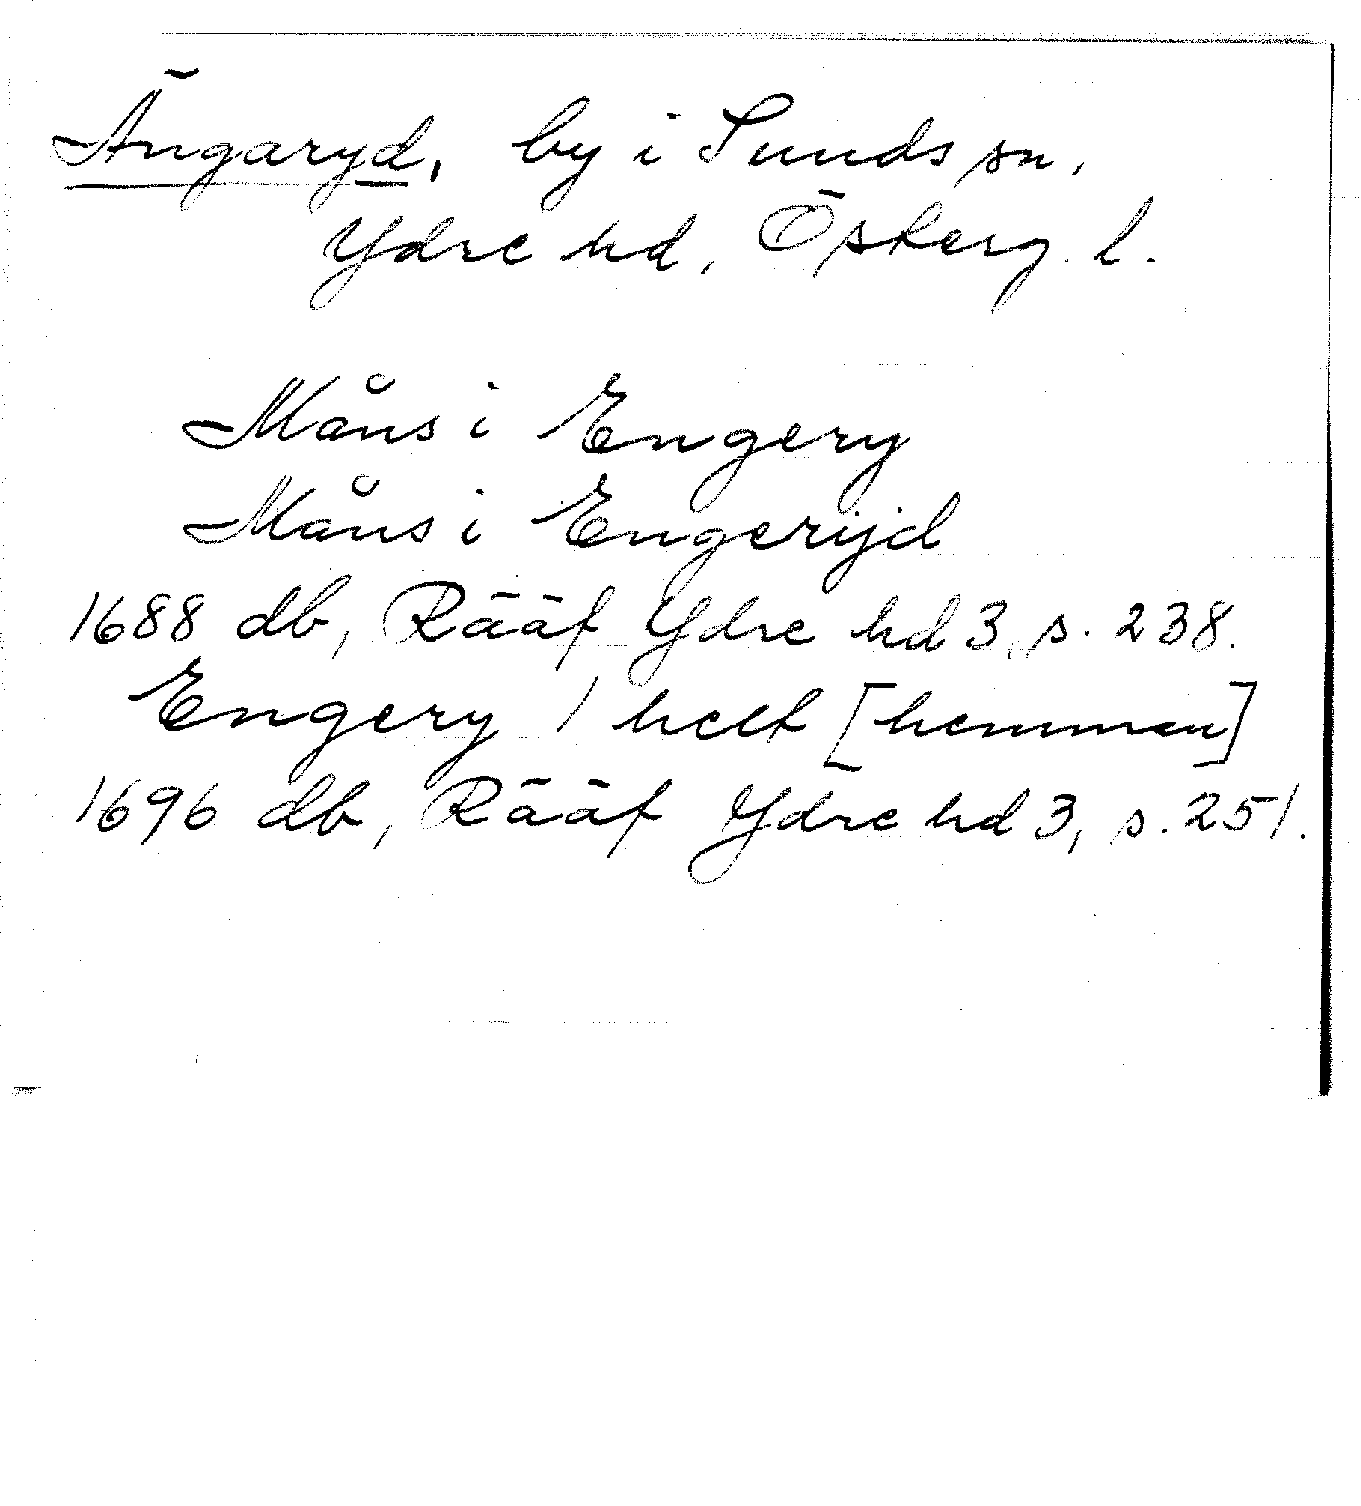 Ängaryd, by i Sunds sn,
Ydre hd, Österg. l.
Måns i Engery
Måns i Engerijd
1688 db, Rääf Ydre hd 3, s. 238.
Engery 1 helt [hemman]
1696 db, Rääf Ydre hd 3, s. 251.